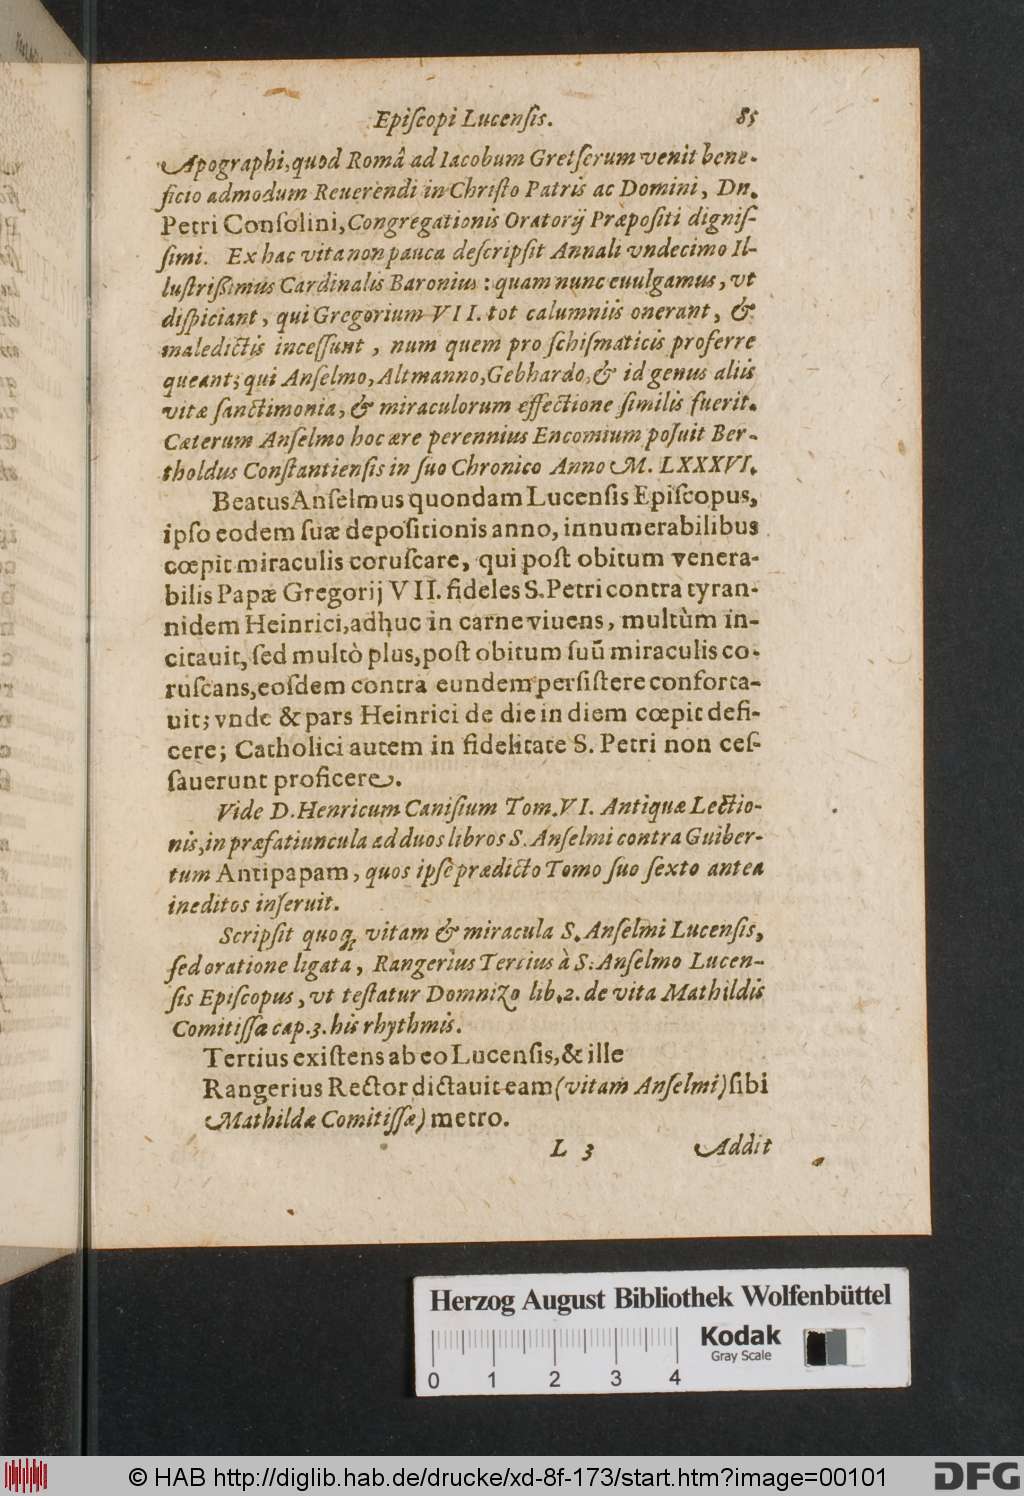 Epiſcopi Lucenſis. 85
Apographi, quod Româ ad Iacobum Gretſerum venit bene-
ficio admodum Reuerendi in Chriſto Patris ac Domini, Dn.
Petri Conſolini, Congregationis Oratorij Præpoſiti digniſ-
ſimi. Ex hac vita non pauca deſcripſit Annali vndecimo Il-
luſtrißimus Cardinalis Baronius: quam nunc euulgamus, vt
diſpiciant, qui Gregorium VII. tot calumniis onerant, &
maledictis inceſſunt, num quem pro ſchiſmaticis proferre
queant; qui Anſelmo, Altmanno, Gebhardo, & id genus aliis
vitæ ſanctimonia, & miraculorum effectione ſimilis fuerit.
Cæterum Anſelmo hoc ære perennius Encomium poſuit Ber-
tholdus Conſtantienſis in ſuo Chronico Anno M. LXXXVI.
Beatus Anſelmus quondam Lucenſis Epiſcopus,
ipſo eodem ſuæ depoſitionis anno, innumerabilibus
cœpit miraculis coruſcare, qui poſt obitum venera-
bilis Papæ Gregorij VII. fideles S. Petri contra tyran-
nidem Heinrici, adhuc in carne viuens, multùm in-
citauit, ſed multò plus, poſt obitum ſuū miraculis co-
ruſcans, eoſdem contra eundem perſiſtere conforta-
uit; vnde & pars Heinrici de die in diem cœpit defi-
cere; Catholici autem in fidelitate S. Petri non ceſ-
ſauerunt proficere.
Vide D. Henricum Caniſium Tom. VI. Antiquæ Lectio-
nis, in præfatiuncula ad duos libros S. Anſelmi contra Guiber-
tum Antipapam, quos ipſe prædicto Tomo ſuo ſexto antea
ineditos inſeruit.
Scripſit quoq; vitam & miracula S. Anſelmi Lucenſis,
ſed oratione ligata, Rangerius Tertius à S. Anſelmo Lucen-
ſis Epiſcopus, vt teſtatur Domnizo lib. 2. de vita Mathildis
Comitiſſæ cap. 3. his rhythmis.
Tertius exiſtens ab eo Lucenſis, & ille
Rangerius Rector dictauit eam (vitam Anſelmi) ſibi
Mathildæ Comitiſſæ) metro.
L 3 Addit
Herzog August Bibliothek Wolfenbüttel
Kodak
Gray Scale
0 1 2 3 4
© HAB http://diglib.hab.de/drucke/xd-8f-173/start.htm?image=00101
DFG